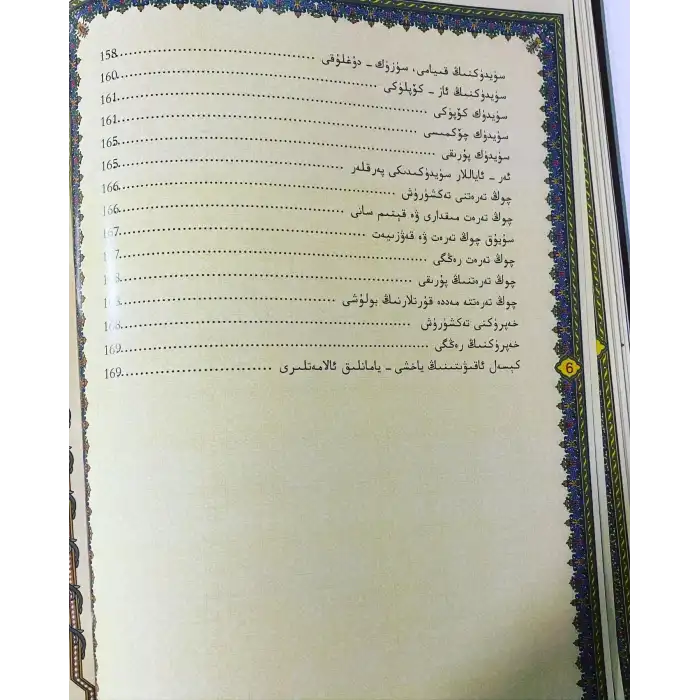 سۈيدۈكنىڭ قىيامى، سۈزۈك - دۇغلۇقى ........ 158
سۈيدۈكنىڭ ئاز - كۆپلۈكى ........ 160
سۈيدۈك كۆپۈكى ........ 161
سۈيدۈك چۆكمىسى ........ 161
سۈيدۈك پۇرىقى ........ 165
ئەر - ئاياللار سۈيدۈكىدىكى پەرقلەر ........ 165
چوڭ تەرەتنى تەكشۈرۈش ........ 166
چوڭ تەرەت مىقدارى ۋە قېتىم سانى ........ 166
سۇيۇق چوڭ تەرەت ۋە قەۋزىيەت ........ 167
چوڭ تەرەت رەڭگى ........ 167
چوڭ تەرەتنىڭ پۇرىقى ........ 168
چوڭ تەرەتتە مەددە قۇرتلارنىڭ بولۇشى ........ 168
خەپرۈكنى تەكشۈرۈش ........ 168
خەپرۈكنىڭ رەڭگى ........ 169
كېسەل ئاقىۋىتىنىڭ ياخشى - يامانلىق ئالامەتلىرى ........ 169
6